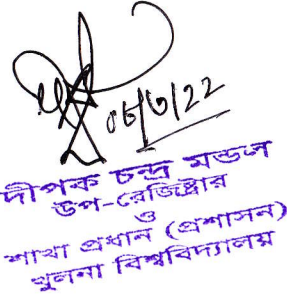 ০৮/৬/২২
দীপক চন্দ্র মন্ডল
উপ-রেজিস্ট্রার
ও
শাখা প্রধান (প্রশাসন)
খুলনা বিশ্ববিদ্যালয়